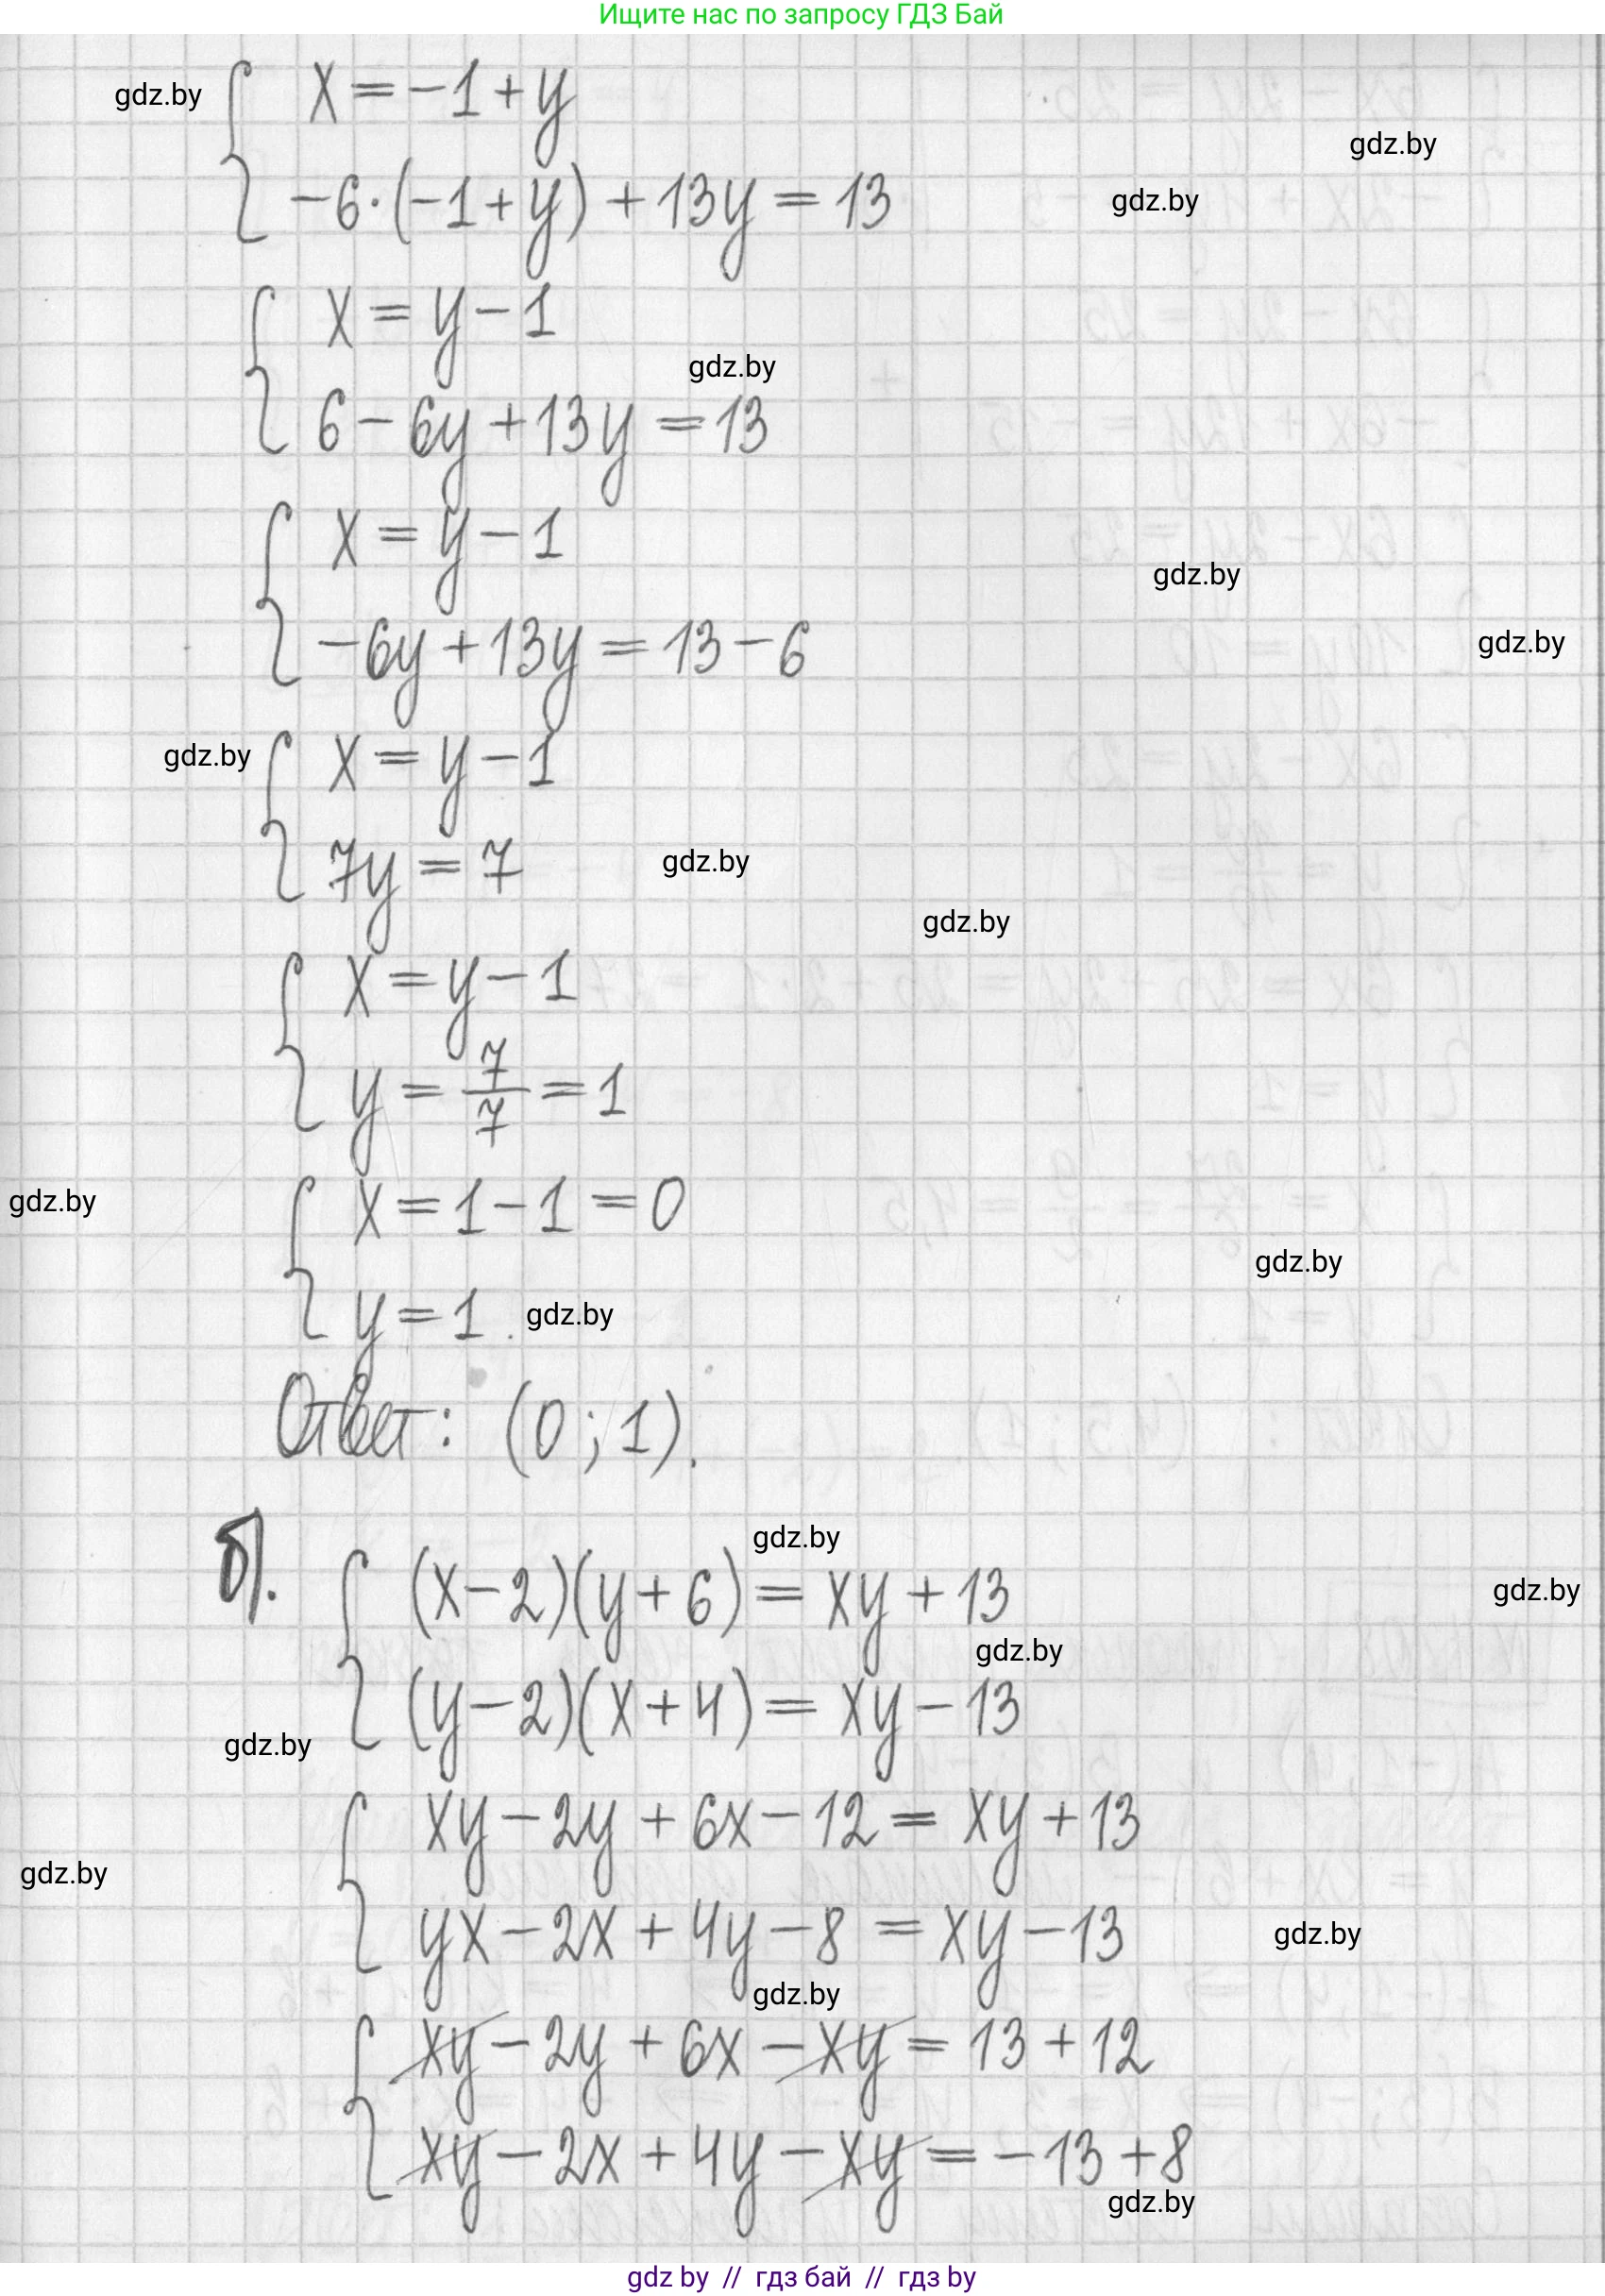 Ищите нас по запросу ГДЗ Бай
gdz.by
x = -1 + y
gdz.by
-6·(-1+y) + 13y = 13
gdz.by
x = y - 1
gdz.by
6 - 6y + 13y = 13
x = y - 1
gdz.by
-6y + 13y = 13 - 6
gdz.by
gdz.by
x = y - 1
7y = 7
gdz.by
gdz.by
x = y - 1
y = 7/7 = 1
gdz.by
x = 1 - 1 = 0
gdz.by
y = 1.
gdz.by
Ответ: (0; 1).
gdz.by
б). (x-2)(y+6) = xy + 13
gdz.by
gdz.by
(y-2)(x+4) = xy - 13
gdz.by
xy - 2y + 6x - 12 = xy + 13
gdz.by
yx - 2x + 4y - 8 = xy - 13
gdz.by
gdz.by
xy - 2y + 6x - xy = 13 + 12
xy - 2x + 4y - xy = -13 + 8
gdz.by
gdz by // гдз бай // гдз by